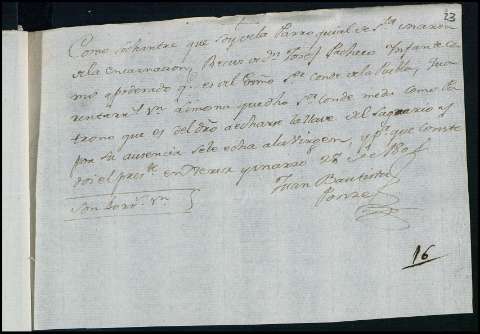 23
Como sochantre que soy de la Parroquial de Sta. Maria
de la Encarnacion, Recivi de Dn. Josef Pacheco Infante
apoderado qe. es del Sor. Conde de la Puebla,
rentar. Vn. limosna que dho Sr. Conde me da como Pa
trono que es del dro a echarse la llave del Sagrario y
por su ausencia se le echa a la Virgen, y pa. que conste
doi el preste. en y marzo 28 de 180
Juan Bautista
Ponze
Son Vn.
16